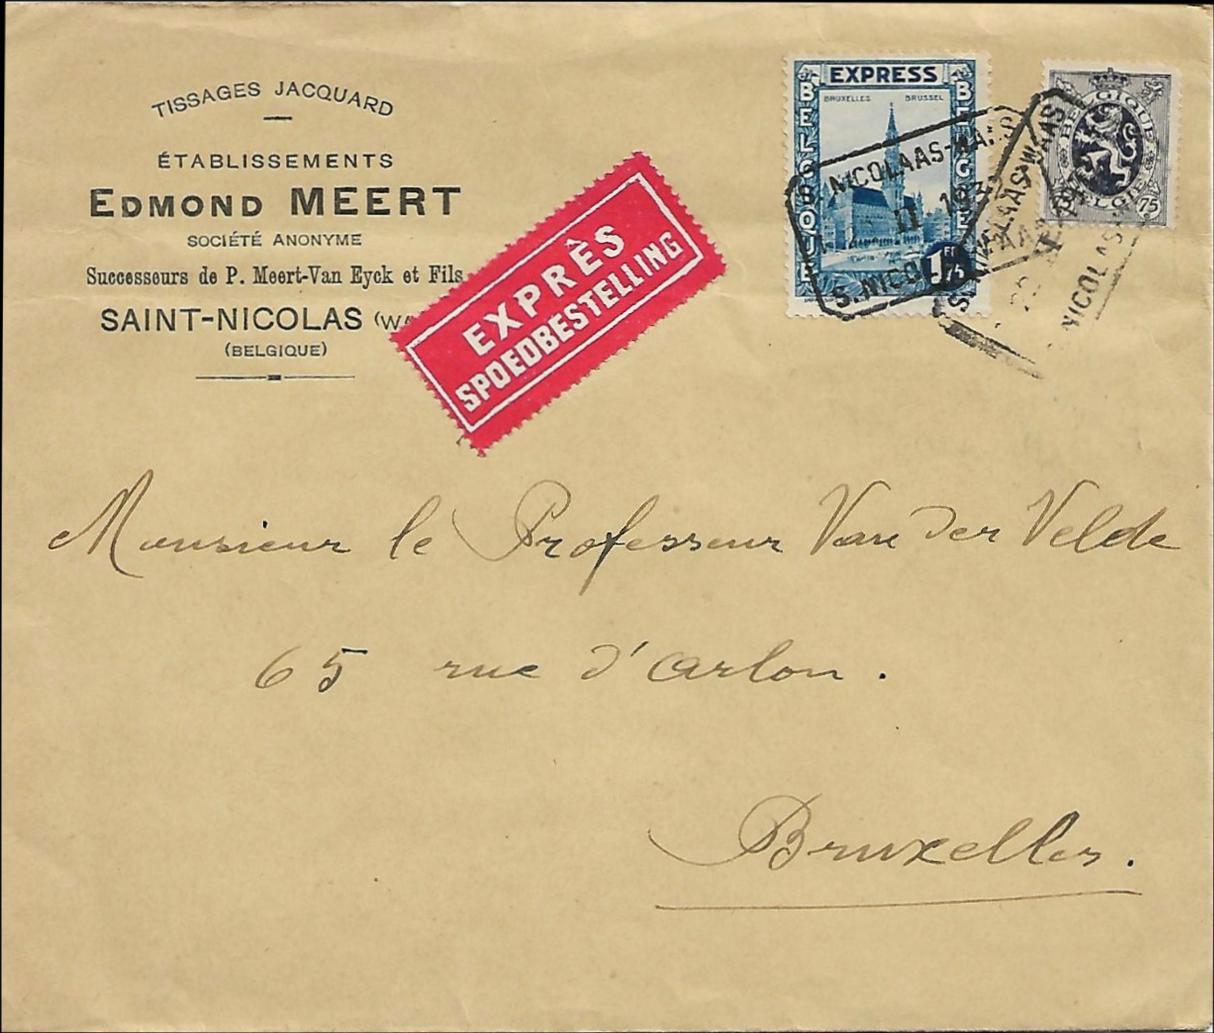 TISSAGES JACQUARD
ÉTABLISSEMENTS
EDMOND MEERT
SOCIÉTÉ ANONYME
Successeurs de P. Meert-Van Eyck et Fils
SAINT-NICOLAS (WA
(BELGIQUE)
EXPRÈS
SPOEDBESTELLING
EXPRESS
BRUXELLES BRUSSEL
BELGIQUE
BELGIE
1 FR 75
S. NICOLAAS-WAAS
II 193
S. NICOLAAS
BELGIQUE
BELGIE
75
75
S. NICOLAAS-WAAS
NICOLAAS
Monsieur le Professeur Van der Velde
65 rue d'Arlon.
Bruxelles.